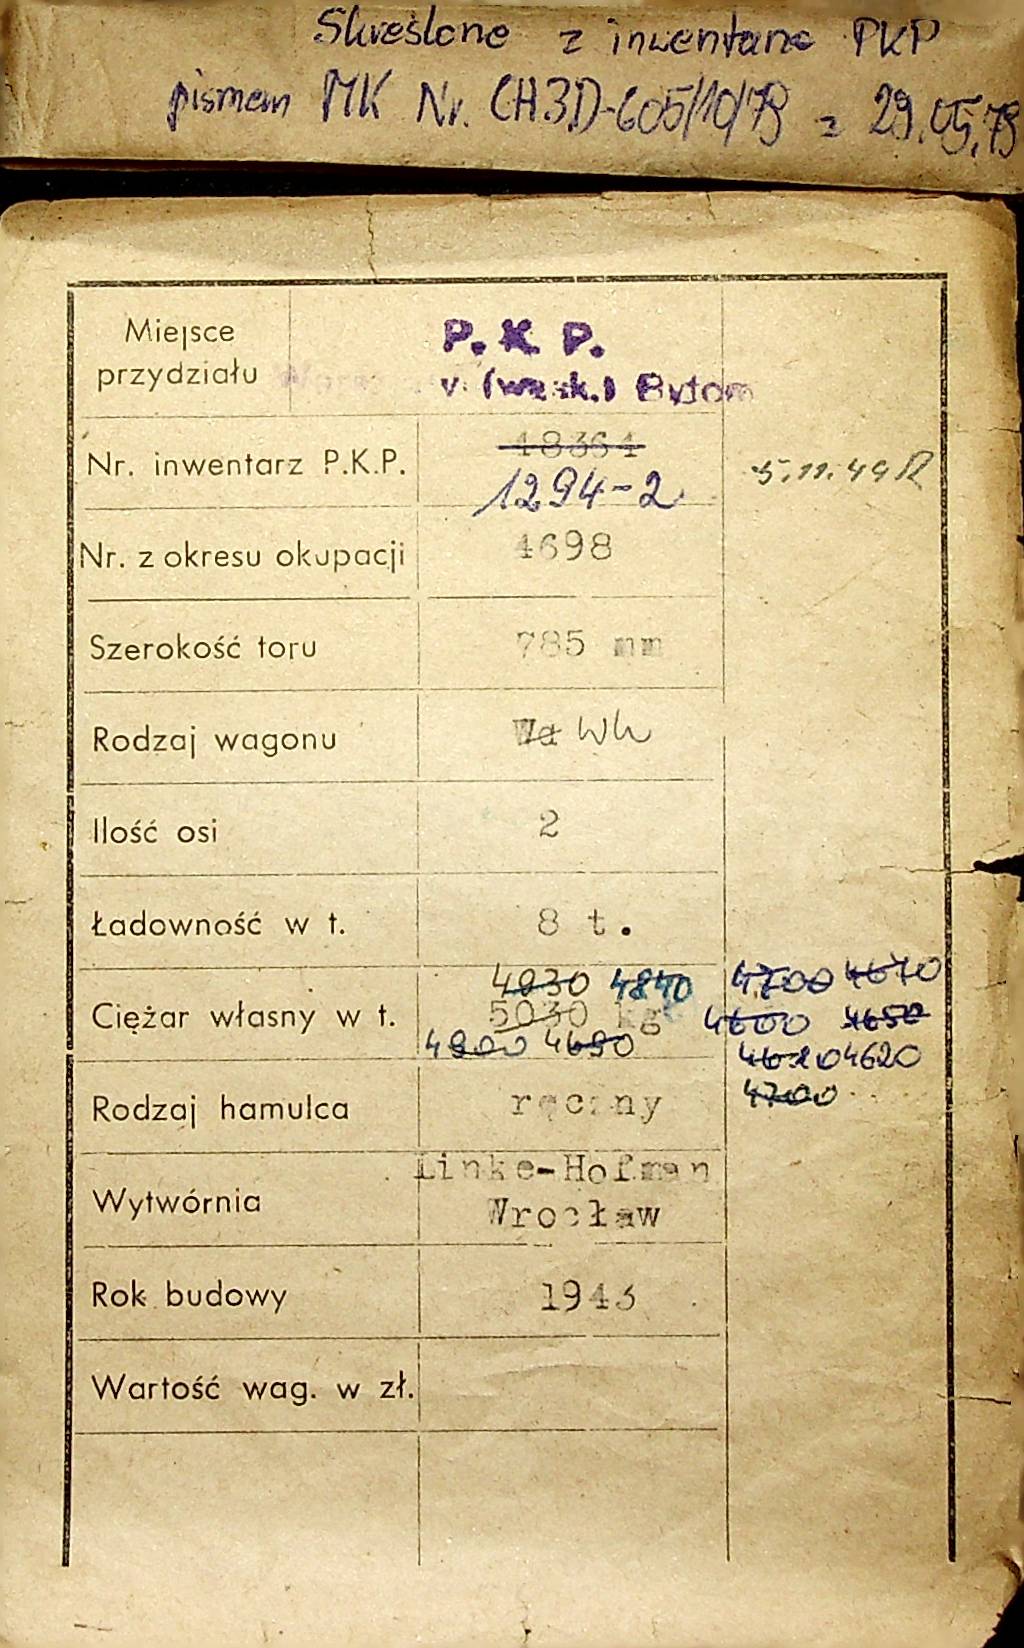 Skreślone z inwentarza PKP
pismem MK Nr. CH3D-605/10/79 z 29.05.79
Miejsce przydziału
P. K. P.
(wąsk.) Bytom
Nr. inwentarz P.K.P.
18364
1294-2
5.11.49
Nr. z okresu okupacji
4698
Szerokość toru
785 mm
Rodzaj wagonu
Wa Wh
Ilość osi
2
Ładowność w t.
8 t.
Ciężar własny w t.
4930 4840 4700 4670
5030 kg 4600 4650
4900 4690 4620
4700
Rodzaj hamulca
ręczny
Wytwórnia
Linke-Hofman
Wrocław
Rok budowy
1943
Wartość wag. w zł.